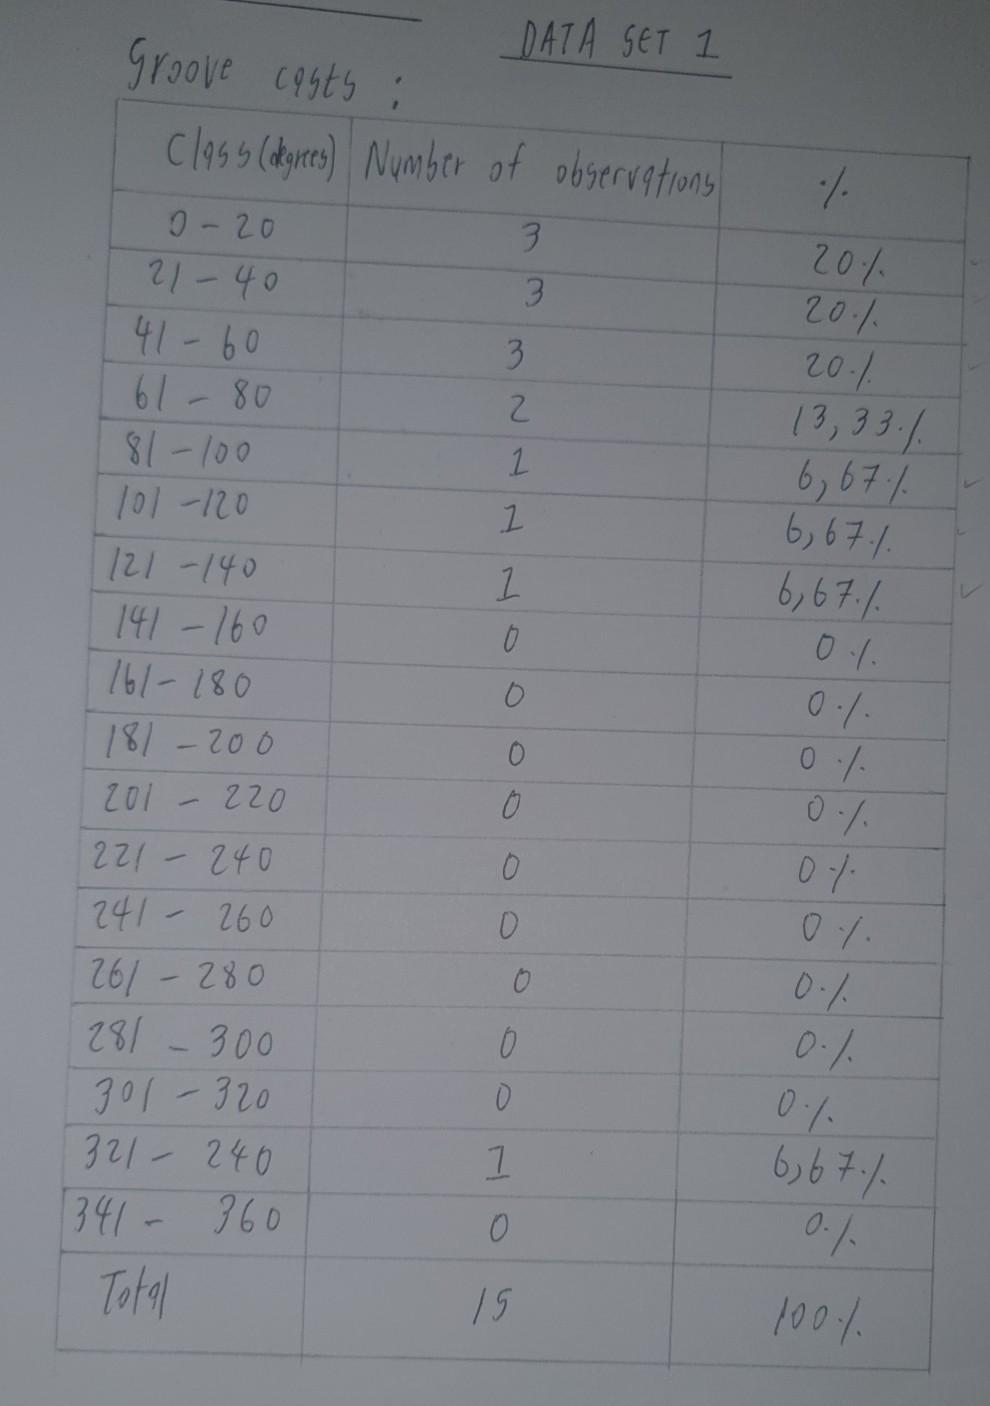 DATA SET 1
Groove casts :
Class (degrees) Number of observations %
0 - 20 3 20%
21 - 40 3 20%
41 - 60 3 20%
61 - 80 2 13,33%
81 - 100 1 6,67%
101 - 120 1 6,67%
121 - 140 1 6,67%
141 - 160 0 0%
161 - 180 0 0%
181 - 200 0 0%
201 - 220 0 0%
221 - 240 0 0%
241 - 260 0 0%
261 - 280 0 0%
281 - 300 0 0%
301 - 320 0 0%
321 - 240 1 6,67%
341 - 360 0 0%
Total 15 100%